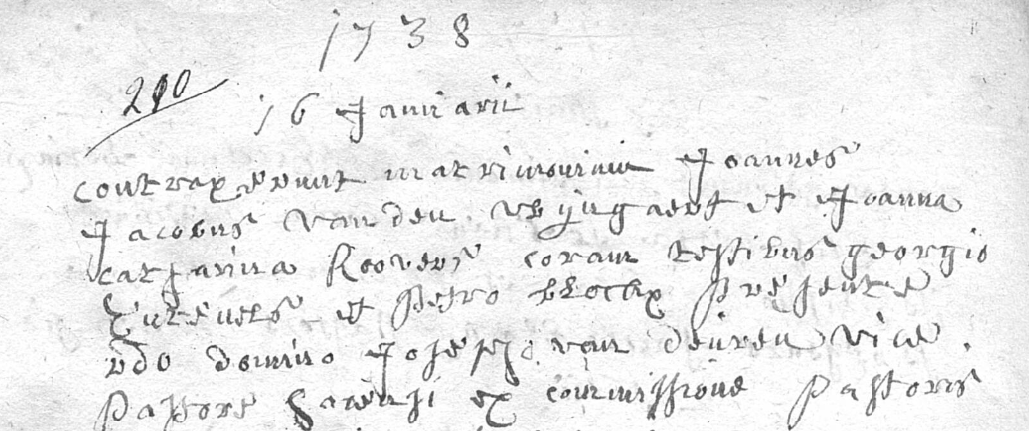 1738
290
16 Januarii
contraxerunt matrimonium Joannes
Jacobus van den wyngaert et Joanna
catharina Roovers coram testibus georgio
et Petro presente
rdo domino Josepho van deuren vice
Pastore ex commissione Pastoris